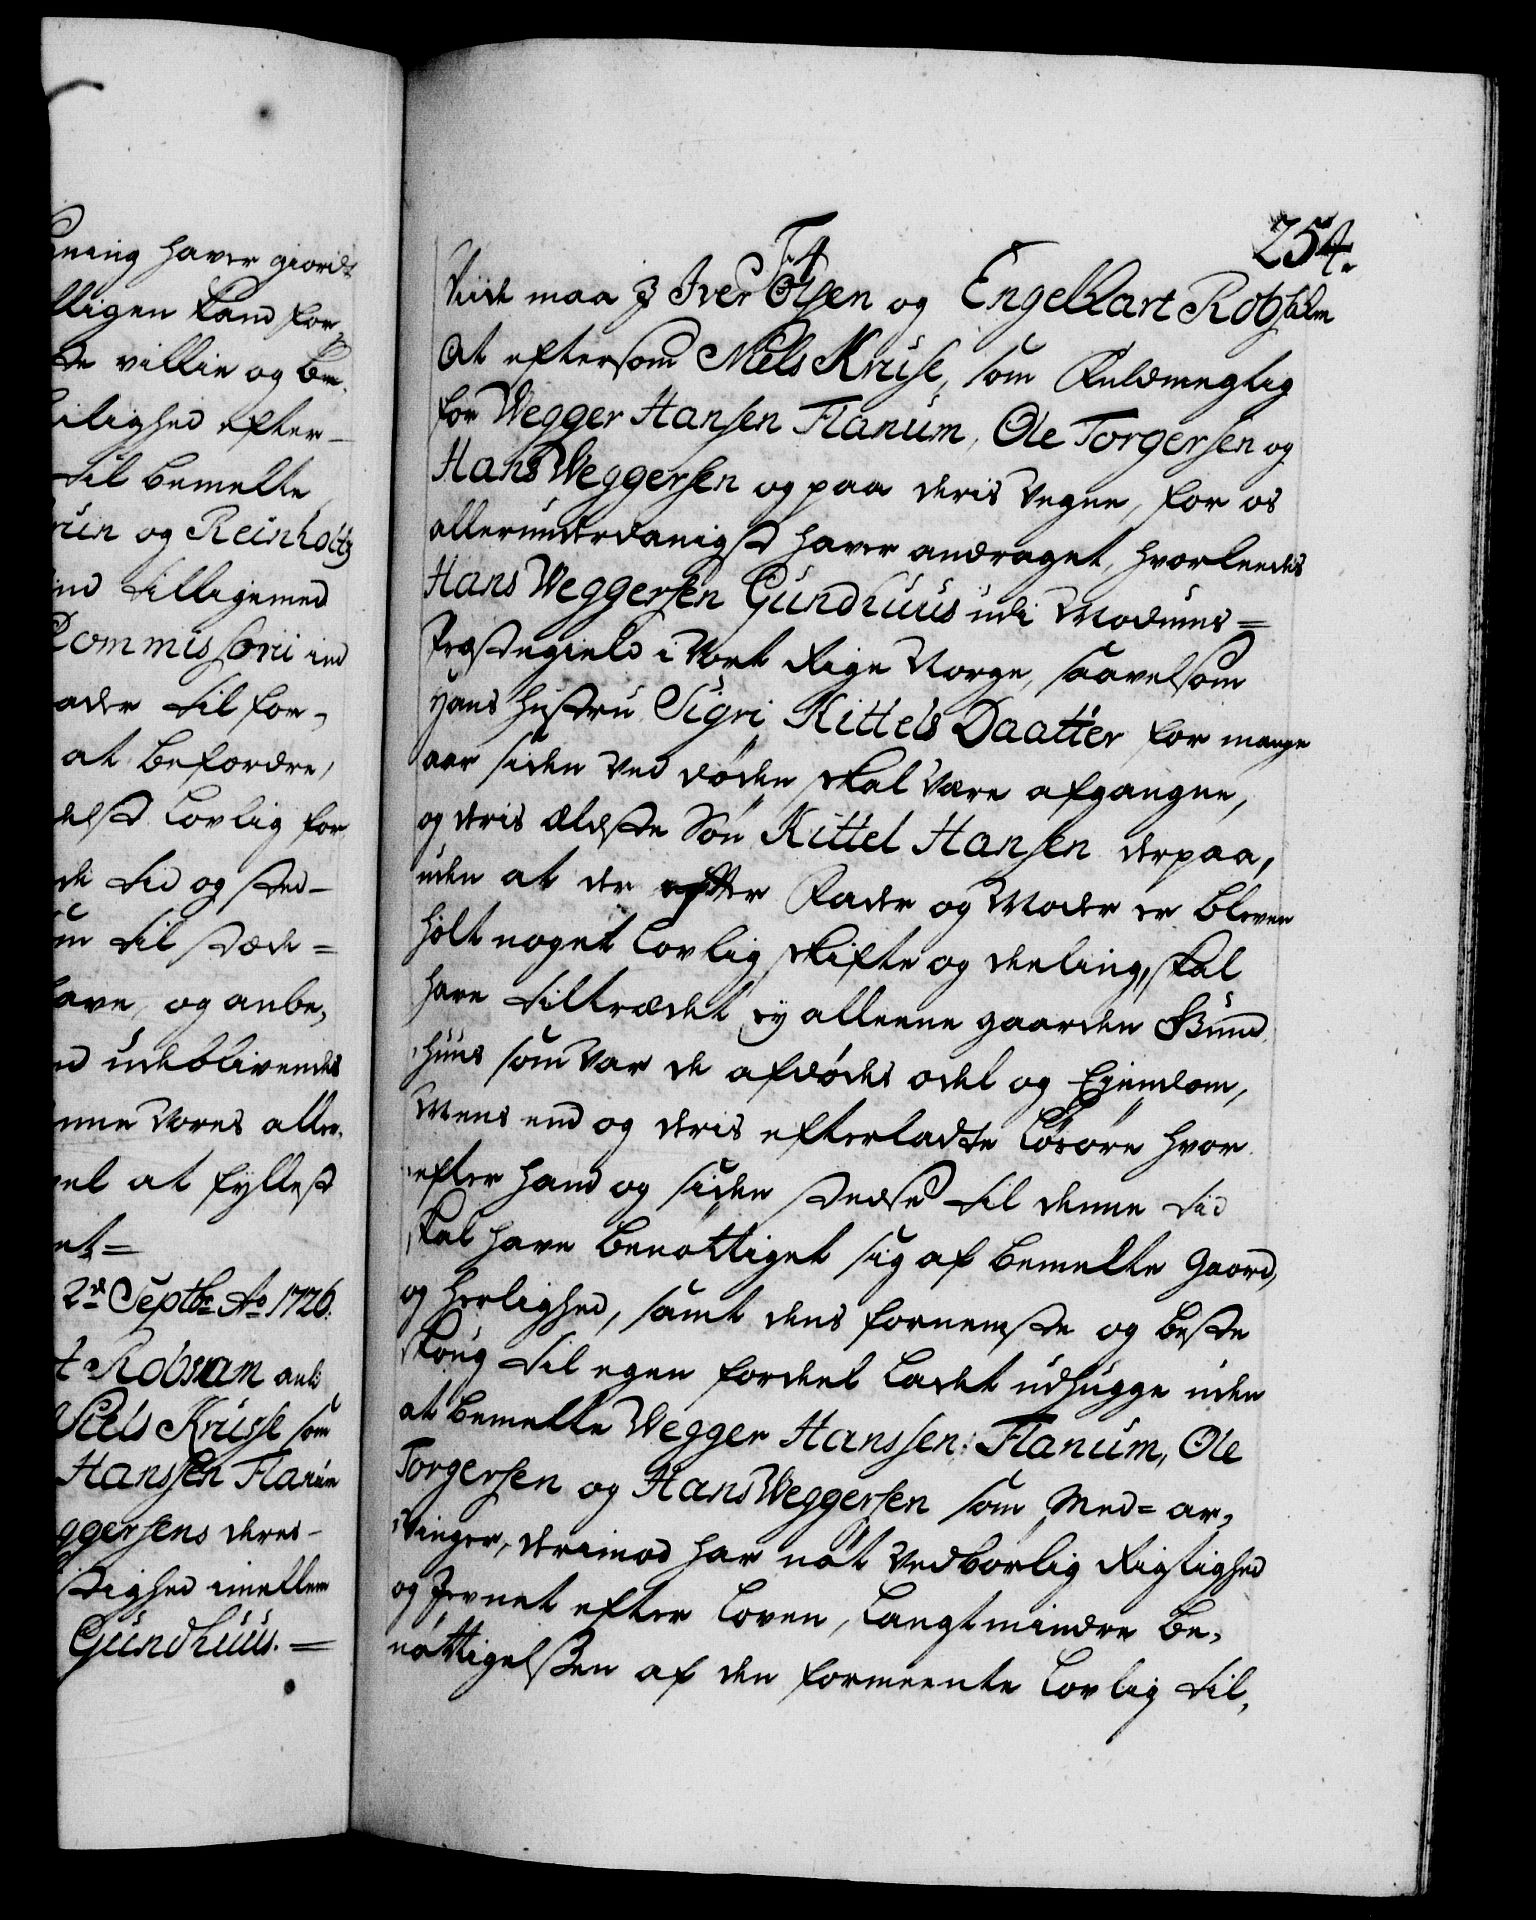 ning haver giordt
lligen Land for-
te villie og be-
lighed efter-
til bemelte
run og Reinholtz
nd tilligemed
Commissorii ind
ader til for-
at befordre,
delst lovlig for
de tid og sted-
til stæde=
have, og anbe-
d udeblivendes
nne Vores aller-
vel at fyllest
et=
2den Septbr Ao 1726.
t Robsam anl:
Niels Krusse som
Hanssen Flanum
ggersens deres-
stighed imellem
Gundhuus.=
254.
F4
Viide maa I Iver Olsen og Engelbart Robsahm
At eftersom Niels Kruse, som Fuldmegtig
for Wegger Hansen Flanum, Ole Torgersen og
Hans Weggersen og paa deris Vegne, for os
allerunderdanigst haver andraget, hvorleedes
Hans Weggersen Gundhuus udi Modums=
Præstegield i Vort Rige Norge, saavelsom
hans hustru Sigri Kittels Daatter for mange
aar siden ved døden skal være afgangne,
og deris ældste Søn Kittel Hansen derpaa,
uden at der efter Fader og Moder er bleven
holt noget lovlig skifte og deeling, skal
have tiltrædet ey alleene gaarden Gund-
huus som var de afdødes odel og Ejendom,
Mens end og deris efterladte Løsøre hvor-
efter hand og siden stedse til denne tid
skal have benøttiget sig af bemelte Gaard,
og herlighed, samt dens fornemste og beste
skoug til egen fordeel ladet udhugge uden
at bemelte Wegger Hanssen Flanum, Ole
Torgersen og Hans Weggersen som Med=ar-
vinger, derimod har nøt vedbørlig Rigtighed
og Jevnet efter Loven, langt mindre be-
nøttigelssen af den formeente lovlig til-